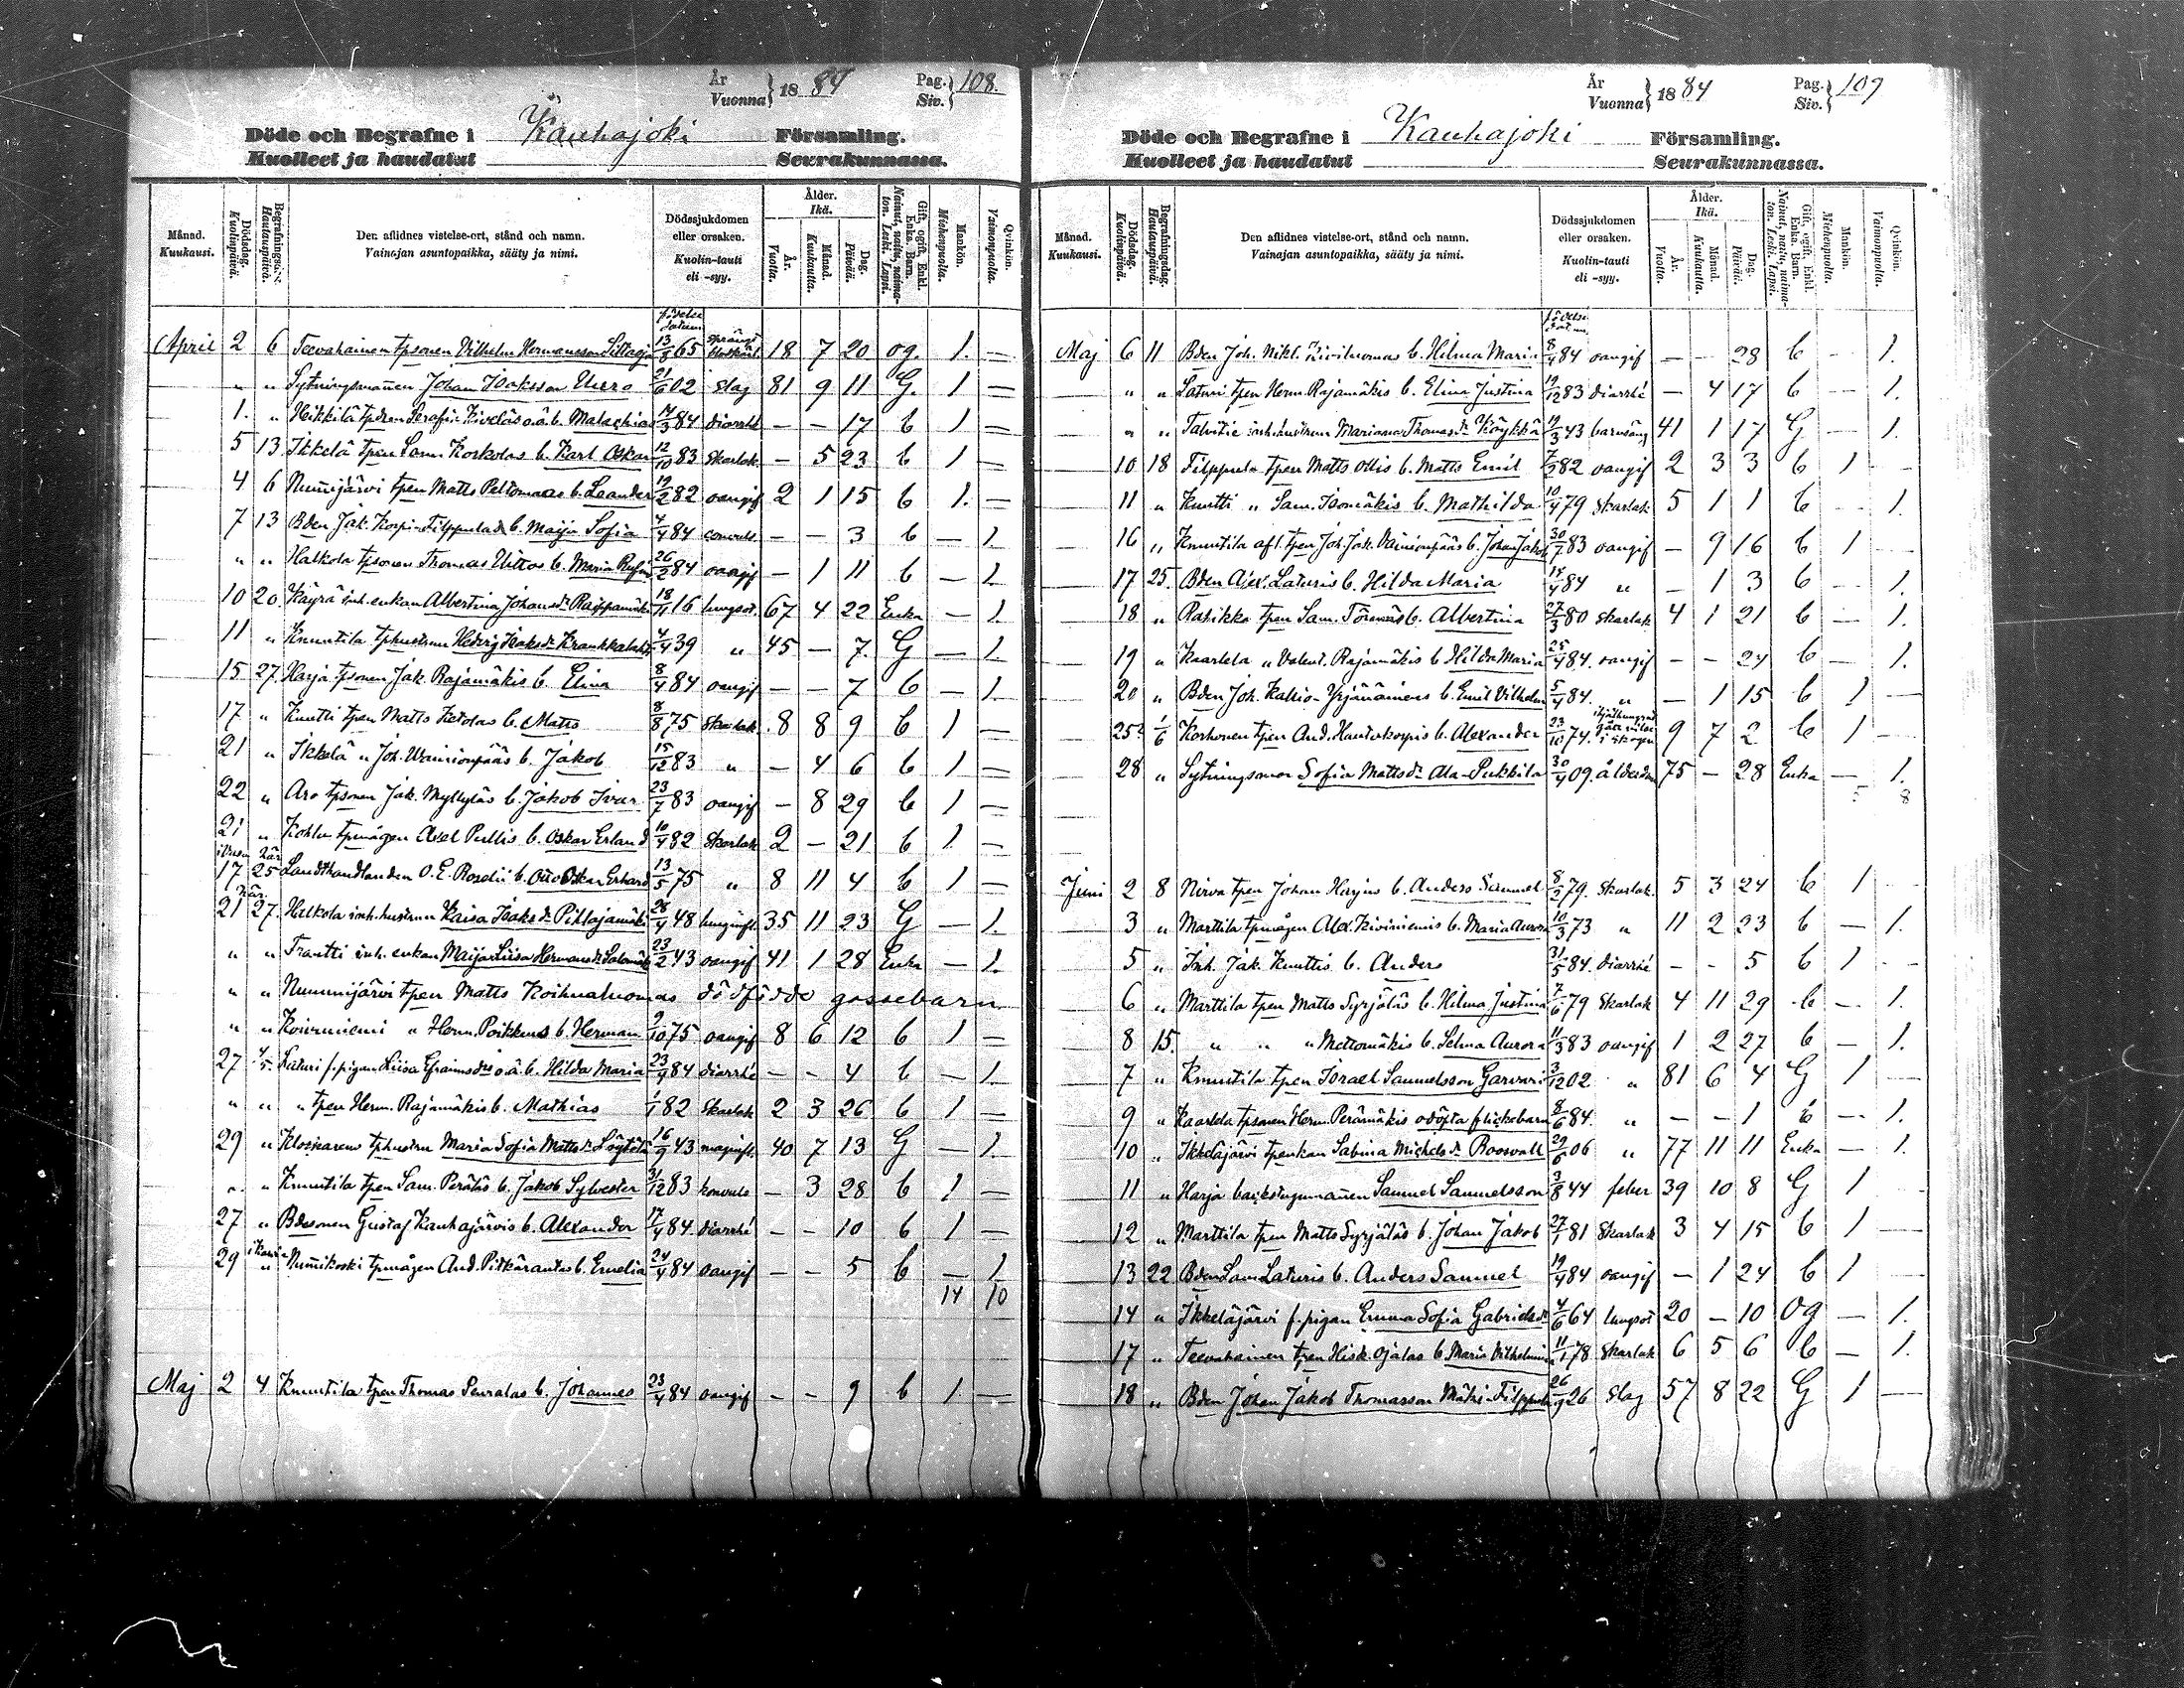 År Vuonna } 1884 Pag. Siv. } 108.
Döde och Begrafne i Kauhajoki Församling.
Kuolleet ja haudatut Seurakunnassa.
Månad. Kuukausi. Dödsdag. Kuolinpäivä. Begrafningsdag. Hautauspäivä. Den aflidnes vistelse-ort, stånd och namn. Vainajan asuntopaikka, sääty ja nimi. Dödssjukdomen eller orsaken. Kuolin-tauti eli -syy. Ålder. Ikä. År. Vuotta. Månad. Kuukautta. Dag. Päivää. Gift, ogift, Enkl. Enka. Barn. Nainut, naitu, naimaton. Leski. Lapsi. Mankön. Miehenpuolta. Qvinkön. Vaimonpuolta.
födelse datum
April 2 6 Teevahainen tpsonen Vilhelm Hermansson 13/8 65 18 7 20 og. 1. —
" " Sytningsmannen Johan Isaksson Uuro 21/6 02 slag 81 9 11 G. 1 —
1. " Heikkilä Serafia o.ä. b. Malachias 14/3 84 diarrhé — — 17 b 1 —
5 13 Ikkelä tpen Sam. Koskelas b. Karl Oskar 12/10 83 Skarlak. — 5 23 b 1 —
4 6 Nummijärvi tpen Matts Peltomaas b. Leander 19/2 82 oangif 2 1 15 b 1. —
7 13 Bden Jak. Korpi-Filppulas b. Maija Sofia 4/4 84 convuls. — — 3 b — 1.
" " Halkola tpsonen Thomas b. Maria 26/2 84 oangif — 1 11 b — 1
10 20. Käyrä inh. enkan Albertina Johansdr 18/11 16 lungsot. 67 4 22 Enka — 1.
11 " Knuutila tphustrun Hedvig Isaksdr 4/4 39 " 45 — 7. G — 1.
15 27. Harja tpsonen Jak. Rajamäkis b. Elina 8/4 84 oangif — — 7 b — 1.
17 " Knutti tpen Matts Ketolas b. Matts 8/8 75 Skarlak. 8 8 9 b 1 —
21 " Ikkelä " Joh. Wainionpääs b. Jakob 15/12 83 " — 4 6 b 1 —
22 " Aro tpsonen Jak. Myllyläs b. Jakob Ivar 23/7 83 oangif — 8 29 b 1 —
21 " tpmågen Axel Pullis b. Oskar Erland 10/4 82 Skarlak 2 — 21. b 1. —
17 25 Landthandlanden O. E. Roselii b. Otto Oskar Erhard 13/5 75 " 8 11 4 b 1 —
här
21 27. Halkola inh. hustrun Kaisa Isaksdr Pihlajamäki 28/4 48 lunginfl. 35 11 23 G — 1.
" " Trautti inh. enkan Maija Liisa Hermansdr 23/2 43 oangif 41 1 28 Enka — 1.
" " Nummijärvi tpen Matts Koihnaluomas dödfödde gossebarn
" " Koivuniemi " Herm. Poikkeus b. Herman 9/10 75 oangif 8 6 12 b 1 —
27 4/5. Laturi f. pigan Liisa Efraimsdrs o.ä. b. Hilda Maria 23/4 84 diarrhé — — 4 b — 1.
" " " tpen Herm. Rajamäkis b. Mathias 1/1 82 Skarlak 2 3 26 b 1 —
29 " tphustrun Maria Sofia Mattsdr 16/9 43 maginfl. 40 7 13 G — 1.
" " Knuutila tpen Sam. Peräläs b. Jakob Sylvester 31/12 83 konvuls — 3 28 b 1 —
27 " Bdesonen Gustaf Kauhajärvis b. Alexander 17/4 84 diarrhé — — 10 b 1 —
29 " Nummikoski tpmågen And. Pitkärantas b. Emelia 24/4 84 oangif — — 5 b — 1
14 10
Maj 2 4 Knuutila tpen Thomas Peuralas b. Johannes 23/4 84 oangif — — 9 b 1. —
År Vuonna } 1884 Pag. Siv. } 109
Döde och Begrafne i Kauhajoki Församling.
Kuolleet ja haudatut Seurakunnassa.
Månad. Kuukausi. Dödsdag. Kuolinpäivä. Begrafningsdag. Hautauspäivä. Den aflidnes vistelse-ort, stånd och namn. Vainajan asuntopaikka, sääty ja nimi. Dödssjukdomen eller orsaken. Kuolin-tauti eli -syy. Ålder. Ikä. År. Vuotta. Månad. Kuukautta. Dag. Päivää. Gift, ogift, Enkl. Enka. Barn. Nainut, naitu, naimaton. Leski. Lapsi. Mankön. Miehenpuolta. Qvinkön. Vaimonpuolta.
födelse datum
Maj 6 11 Bden Joh. Nikl. Kiviluomas b. Hilma Maria 8/4 84 oangif — — 28 b — 1.
" " Laturi tpen Herm. Rajamäkis b. Elina Justina 19/12 83 diarrhé — 4 17 b — 1.
" " Talvitie inh. hustrun Mariana Thomasdr Köykkä 19/3 43 barnsäng 41 1 17 G — 1.
10 18 Filppula tpen Matts Ollis b. Matts Emil 7/2 82 oangif 2 3 3 b 1
11 " Knutti " Sam. b. Mathilda 10/4 79 Skarlak 5 1 1 b — 1.
16 " Knuutila afl. tpen Joh. Jak. Vainionpääs b. Johan Jakob 30/7 83 oangif — 9 16 b 1 —
17 25. Bden Alex. Laturis b. Hilda Maria 14/4 84 " — 1 3 b — 1.
18 " Rasikka tpen Sam. b. Albertina 27/3 80 Skarlak 4 1 21 b — 1.
19 " Kaarlela " Valent. Rajamäkis b Hilda Maria 25/4 84. oangif — — 24 b — 1.
20 " Bden Joh. Kallio-Yrjänäinens b. Emil Vilhelm 5/4 84. " — 1 15 b 1 —
25? 1/6 Korhonen tpen And. Hautakorpis b. Alexander 23/10 74. i skogen 9 7 2 b 1 —
28 " Sytningsenkan Sofia Mattsdr Ala-Pukkila 30/4 09. ålderdom 75 — 28 Enka — 1.
5 8
Juni 2 8 Nirva tpen Johan Harjus b. Anders Samuel 8/2 79. Skarlak. 5 3 24 b 1 —
3 " Marttila tpmågen Alex. Kiviniemis b. Maria Aurora 10/3 73 " 11 2 23 b — 1.
5 " Inh. Jak. Knuttis b. Anders 31/5 84. diarrhé — — 5 b 1 —
6 " Marttila tpen Matts Syrjäläs b. Hilma Justina 7/6 79 Skarlak 4 11 29 b — 1.
8 15. " " " Mettomäkis b. Selma Aurora 11/3 83 oangif 1 2 27 b — 1.
7 " Knuutila tpen Israel Samuelsson Garvari 3/12 02 " 81 6 4 G 1 —
9 " Kaarlela tpsonen Herm. Perämäkis odöpta flickebarn 8/6 84. " — — 1 b — 1.
10 " Ikkeläjärvi tpenkan Sabina Michelsdr Roosvall 29/6 06 " 77 11 11 Enka — 1.
11 " Harja backstugumannen Samuel Samuelsson 3/8 44 feber 39 10 8 G 1
12 " Marttila tpen Matts Syrjäläs b. Johan Jakob 27/1 81 Skarlak 3 4 15 b 1 —
13 22 Bden Sam Laturis b. Anders Samuel 19/4 84 oangif — 1 24 b 1
14 " Ikkeläjärvi f. pigan Emma Sofia Gabrielsdr 4/6 64 lungsot 20 — 10 Og — 1.
17 " Teevahainen tpen Hisk. Ojalas b. Maria Vilhelmina 11/1 78 Skarlak 6 5 6 b — 1.
18 " Bden Johan Jakob Thomasson Mäki-Filppula 26/9 26 slag 57 8 22 G 1 —